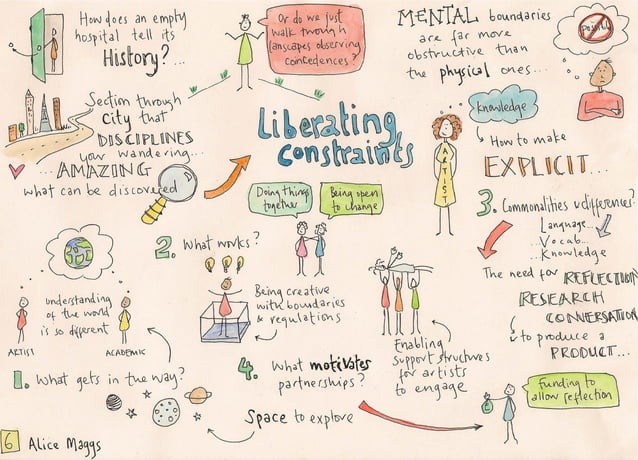 How does an empty
hospital tell its
History?...
Or do we just
walk through
lanscapes observing
coincedences?
MENTAL boundaries
are far more
obstructive than
the physical ones...
Section through
city that
DISCIPLINES
your wandering...
AMAZING
what can be discovered
Liberating
constraints
Knowledge
How to make
EXPLICIT...
ARTIST
Doing things
together
Being open
to change
2. What works?
Being creative
with boundaries
& regulations
Enabling
support structures
for artists
to engage
3. Commonalities & differences?
Language...
..Vocab...
..Knowledge
The need for REFLECTION
RESEARCH
CONVERSATION
to produce a
PRODUCT...
Understanding
of the world
is so different
ARTIST
ACADEMIC
1. What gets in the way?
4. What motivates
partnerships?
Space to explore
Funding to
allow reflection
6 Alice Maggs